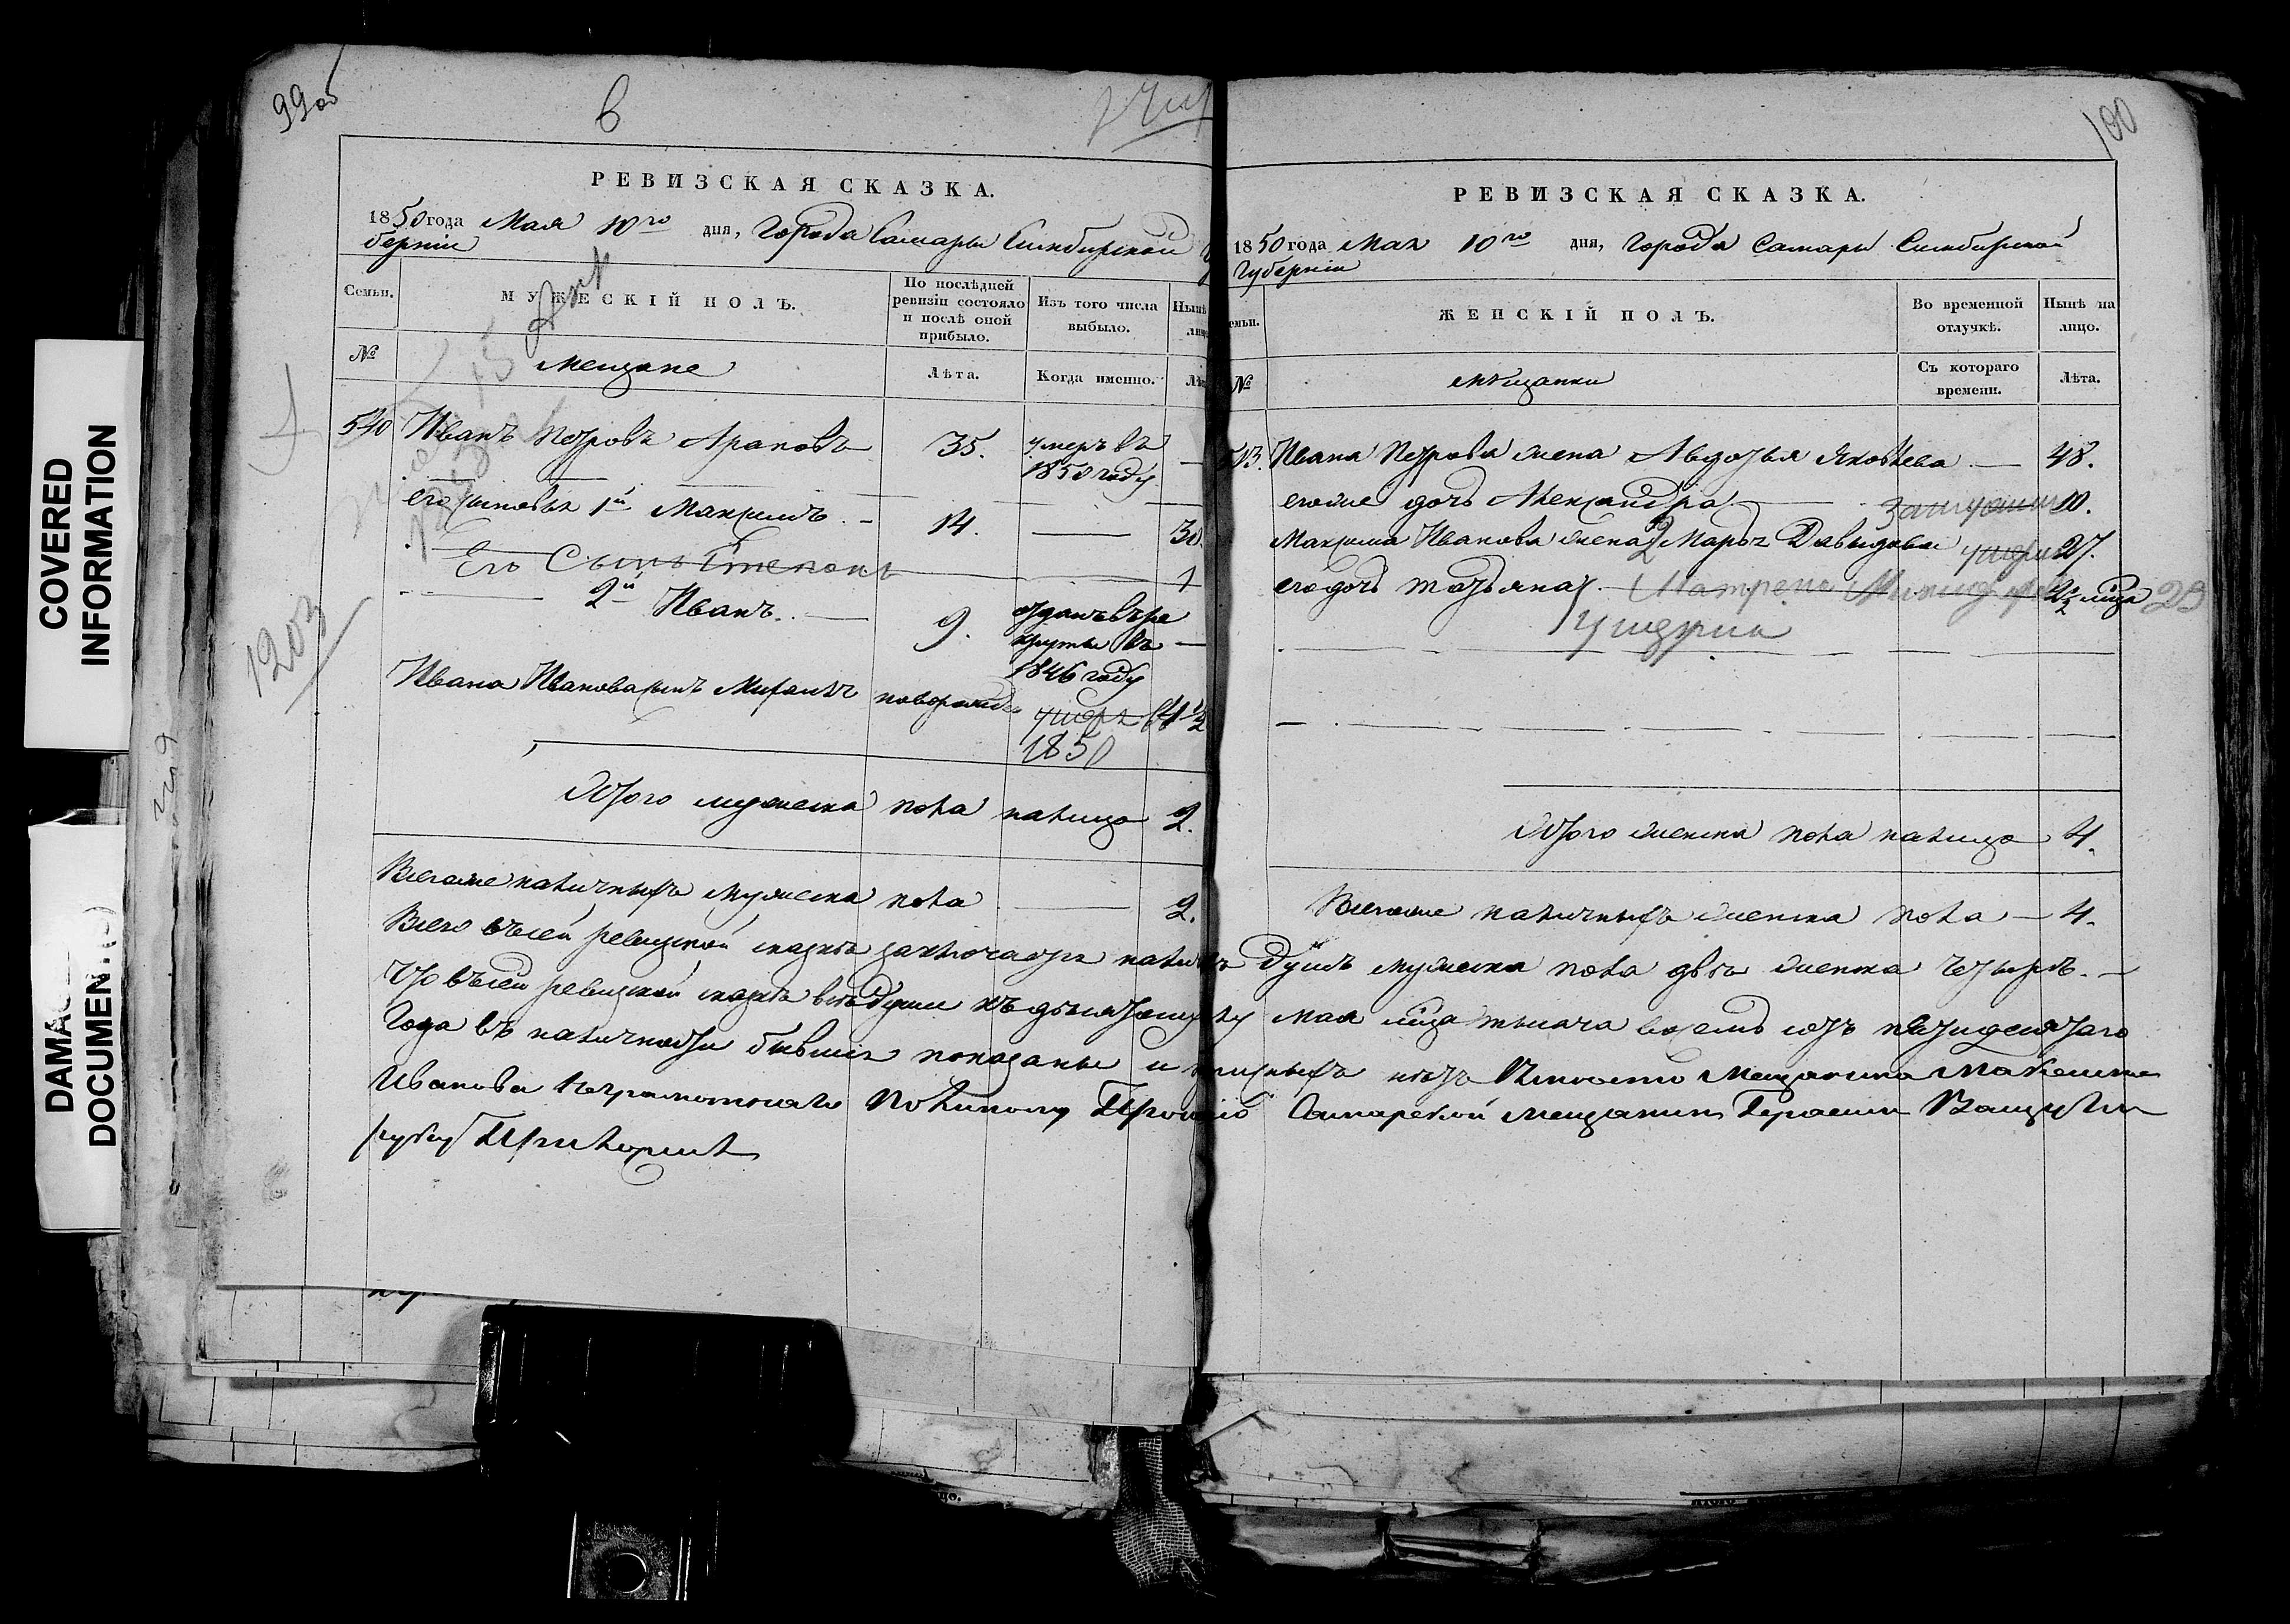 COVERED
INFORMATION
DAMAG
DOCUMEN
99 об
в
РЕВИЗСКАЯ СКАЗКА.
1850 года Мая 10го дня, Города Самары Симбирской Гу
берніи
Семьи.
МУЖЕСКІЙ ПОЛЪ.
По послѣдней
ревизіи состояло
и послѣ оной
прибыло.
Изъ того числа
выбыло.
Нынѣ
лицо
№
Мещане
Лѣта.
Когда именно.
Лѣт
540 Иванъ Петровъ Араповъ 35. умеръ въ
1850 году —
его сыновья 1й Максимъ. 14. — 30.
Его Сынъ Степанъ 1
2й Иванъ. 9. отданъ въ ре
круты въ —
1846 году
Ивана Иванова сынъ Михаилъ новорожден 4 1/2
умеръ в
1850
Итого мужеска пола налицо 2.
Всегоже наличныхъ мужеска пола 2.
1203
100
РЕВИЗСКАЯ СКАЗКА.
1850 года Мая 10го дня, Города Самары Симбирской
Губерніи
емьи.
ЖЕНСКІЙ ПОЛЪ.
Во временной
отлучкѣ.
Нынѣ на
лицо.
№
мѣщанки
Съ котораго
времени.
Лѣта.
Ивана Петрова жена Авдотья Яковлева — 48.
его же дочь Александра замужем 10.
Максима Иванова жена 2 Марья Давыдова умерла 27.
его дочь Татьяна. Матрена 23
умерла
Итого женска пола налицо 4.
Всегоже наличныхъ женска пола — 4.
Всего въ сей ревизской сказкѣ заключается наличныхъ душъ мужеска пола двѣ женска четыре. —
Что въ сей ревизской сказкѣ всѣ души къ десятому числу мая мѣсяца тысяча восемь сотъ пятидесятаго
Года въ наличности бывшія показаны и прописныхъ нѣтъ Вместо Мещанина Максима
Иванова неграмотнаго По личному Прошению Самарской мещанинъ Герасим
руку Приложилъ